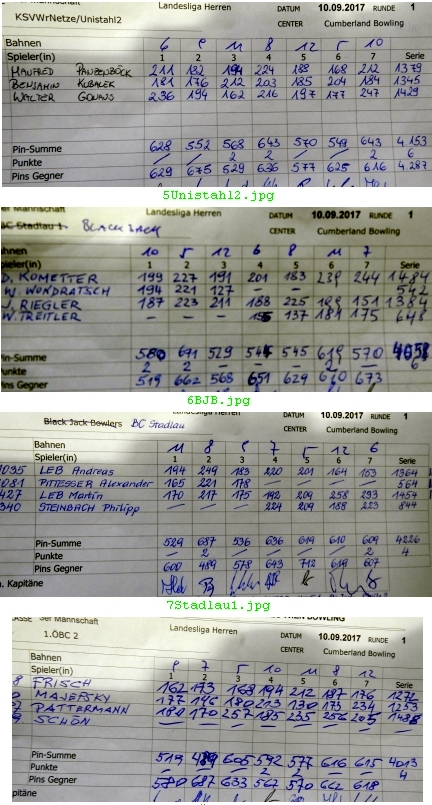 3er Mannschaft Landesliga Herren DATUM 10.09.2017 RUNDE 1
KSVWrNetze/Unistahl2 CENTER Cumberland Bowling
Bahnen 6 11 8 12 5 10
Spieler(in) 1 2 3 4 5 6 7 Serie
MANFRED PANZENBÖCK 211 182 194 224 188 168 212 1379
BENJAMIN KUBALEK 181 176 212 203 185 204 184 1345
WALTER GONAUS 236 194 162 216 197 177 247 1429
Pin-Summe 628 552 568 643 570 549 643 4153
Punkte / / 2 2 / / 2 6
Pins Gegner 629 675 529 636 577 625 616 4287
5Unistahl2.jpg
3er Mannschaft Landesliga Herren DATUM 10.09.2017 RUNDE 1
BC Stadlau 1 BLACK JACK CENTER Cumberland Bowling
Bahnen 10 5 12 6 8 11 7
Spieler(in) 1 2 3 4 5 6 7 Serie
D. KOMETTER 199 227 191 201 183 239 244 1484
W. WONDRATSCH 194 221 127 — — — — 542
J. RIEGLER 187 223 211 188 225 199 151 1384
W. TREITLER — — — 137 181 175 648
Pin-Summe 580 671 529 545 619 570 4058
Punkte 2 2 / / / 2 / 6
Pins Gegner 519 662 568 651 629 673
6BJB.jpg
Landesliga Herren DATUM 10.09.2017 RUNDE 1
Black Jack Bowlers BC Stadlau CENTER Cumberland Bowling
Bahnen 11 8 10 7 5 12 6
Spieler(in) 1 2 3 4 5 6 7 Serie
LEB Andreas 194 249 183 220 201 164 153 1364
PITTESSER Alexander 165 221 178 — — — — 564
LEB Martin 170 217 175 192 209 258 233 1454
STEINBACH Philipp — — — 224 209 188 223 844
Pin-Summe 529 687 536 636 619 610 609 4226
Punkte / 2 / / / / 2 4
Pins Gegner 600 489 578 643 712 619 607
Kapitäne
7Stadlau1.jpg
3er Mannschaft Landesliga Herren BOWLING
1.ÖBC 2 DATUM 10.09.2017 RUNDE 1
CENTER Cumberland Bowling
Bahnen 7 5 10 11 8 12
Spieler(in) 1 2 3 4 5 6 7 Serie
FRISCH 162 173 168 194 212 187 176 1272
MAJEFSKY 177 146 180 213 130 173 234 1253
PATTERMANN 180 170 257 185 235 256 205 1488
SCHÖN
Pin-Summe 519 489 605 592 577 616 615 4013
Punkte / / / 2 2 / / 4
Pins Gegner 580 687 633 567 570 662 618